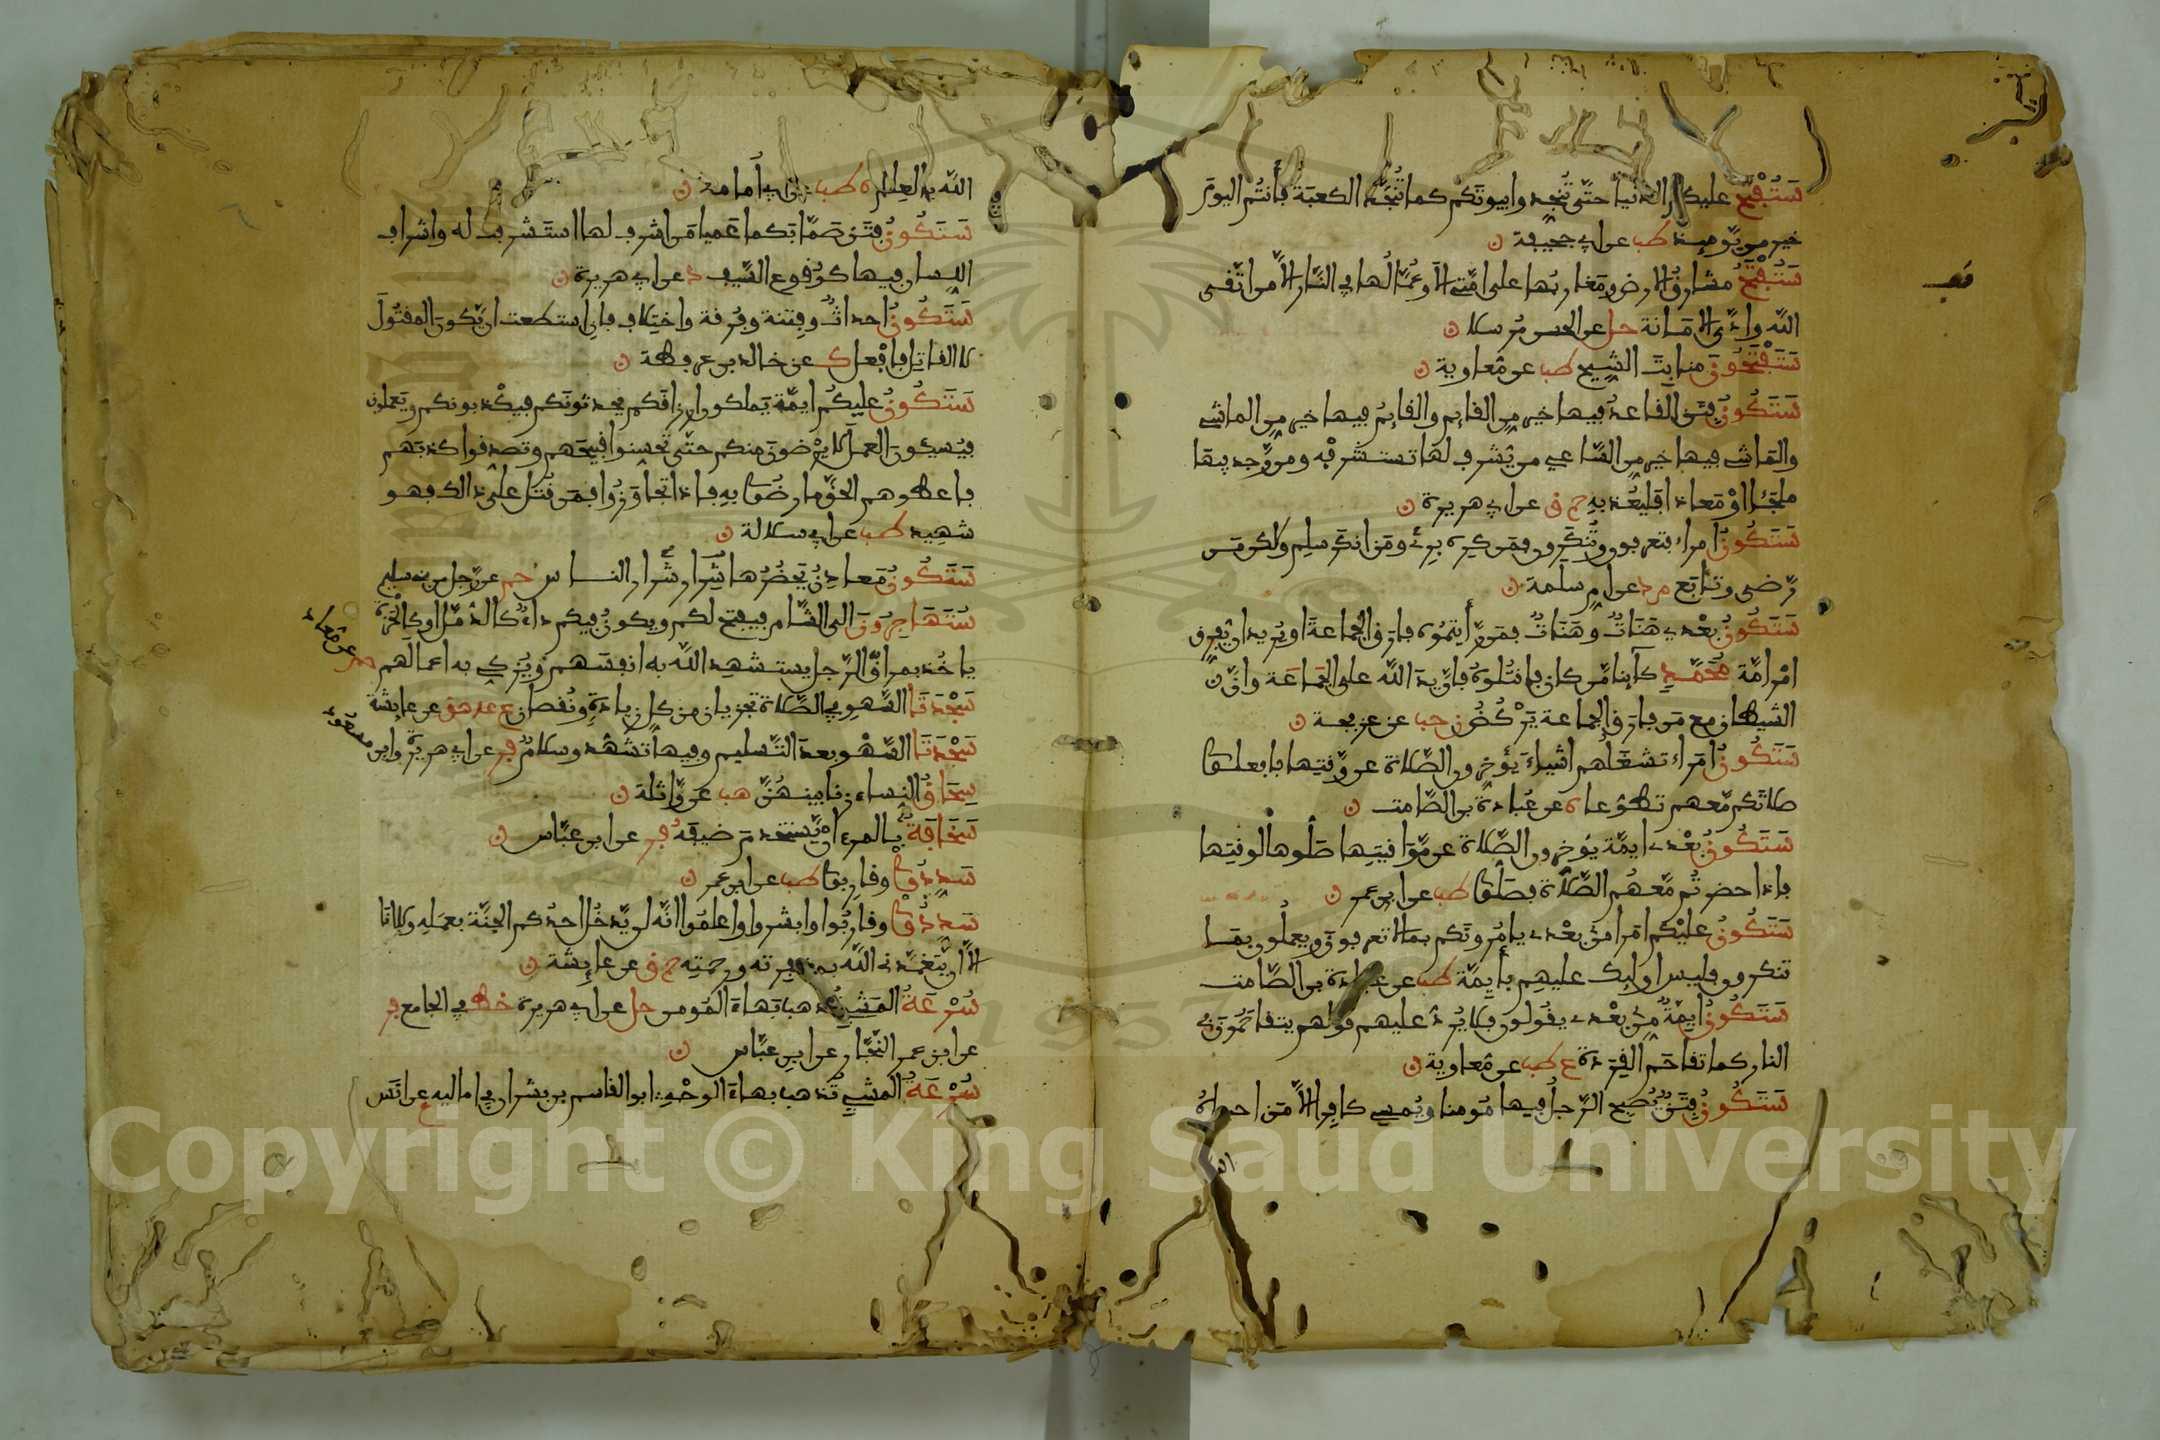 ستفتح عليكم الدنيا حتى تنجدوا بيوتكم كما تنجد الكعبة فأنتم اليوم
خير من يومئذ طب عن ابي جحيفة ن
ستفتح مشارق الارض ومغاربها على امتي الا وعمالها في النار الا من اتقى
الله وادى الامانة حل عن الحسن مرسلا ن
ستفتحون منابت الشيح طب عن معاوية ن
ستكون فتن القاعد فيها خير من القايم والقايم فيها خير من الماشي
والماشي فيها خير من الساعي من يشرف لها تستشرفه ومن وجد فيها
ملجئا او معاذا فليعذ به حم ق عن ابي هريرة ن
ستكون امراء فتعرفون وتنكرون فمن كره برئ ومن انكر سلم ولكن من
رضي وتابع م د عن ام سلمة ن
ستكون بعدي هنات وهنات فمن رأيتموه فارق الجماعة او يريد ان يفرق
امر امة محمد كاينا من كان فاقتلوه فان يد الله على الجماعة وان
الشيطان مع من فارق الجماعة يركض ن حب عن عرفجة ن
ستكون امراء تشغلهم اشياء يؤخرون الصلاة عن وقتها فاجعلوا
صلاتكم معهم تطوعا ه عن عبادة بن الصامت ن
ستكون بعدي ايمة يؤخرون الصلاة عن مواقيتها صلوها لوقتها
فاذا حضرتم معهم الصلاة فصلوا طب عن ابن عمر ن
ستكون عليكم امرا من بعدي يامرونكم بما لا تعرفون ويعملون بما
تنكرون فليس اولئك عليهم بأيمة طب عن عبادة بن الصامت
ستكون ايمة من بعدي يقولون فلا يرد عليهم قولهم يتقاحمون في
النار كما تقاحم القردة ع طب عن معاوية ن
ستكون فتن يصبح الرجل فيها مؤمنا ويمسي كافرا الا من احياه
الله بالعلم ه طب عن ابي أمامة ن
ستكون فتن صما بكما عميا من اشرف لها استشرفت له واشراف
اللسان فيها كوقوع السيف د عن ابي هريرة ن
ستكون احداث وفتنة وفرقة واختلاف فان استطعت ان تكون المقتول
لا القاتل فافعل ك عن خالد بن عرفطة ن
ستكون عليكم ايمة يملكون ارزاقكم يحدثونكم فيكذبونكم ويعملون
فيسيئون العمل لا يرضون منكم حتى تحسنوا قبيحهم وتصدقوا كذبهم
فاعطوهم الحق ما رضوا به فاذا تجاوزوا فمن قتل على ذلك فهو
شهيد طب عن ابي سلالة ن
ستكون معادن يحضرها شرار الناس حم عن رجل من بني سليم
ستهاجرون الى الشام فيفتح لكم ويكون فيكم داء كالدمل او كالحزة
ياخذ بمراق الرجل يستشهد الله به انفسهم ويزكي به اعمالهم حم عن معاذ
سجدتا السهو في الصلاة تجزيان من كل زيادة ونقصان ع عد هق عن عايشة
سجدتا السهو بعد التسليم وفيهما تشهد وسلام فر عن ابي هريرة وابن مسعود
سحاق النساء زنا بينهن هب عن واثلة ن
سخافة بالمرء ان يستخدم ضيفه فر عن ابن عباس ن
سددوا وقاربوا طب عن ابن عمر ن
سددوا وقاربوا وابشروا واعلموا انه لن يدخل احدكم الجنة بعمله ولا انا
الا ان يتغمدني الله بمغفرته ورحمته حم ق عن عايشة ن
سرعة المشي تذهب بهاء المؤمن حل عن ابي هريرة خط في الجامع فر
عن ابن عمر النجار عن ابن عباس ن
سرعة المشي تذهب بهاء الوجه ابو القاسم بن بشران في اماليه عن انس
Copyright © King Saud University
1957